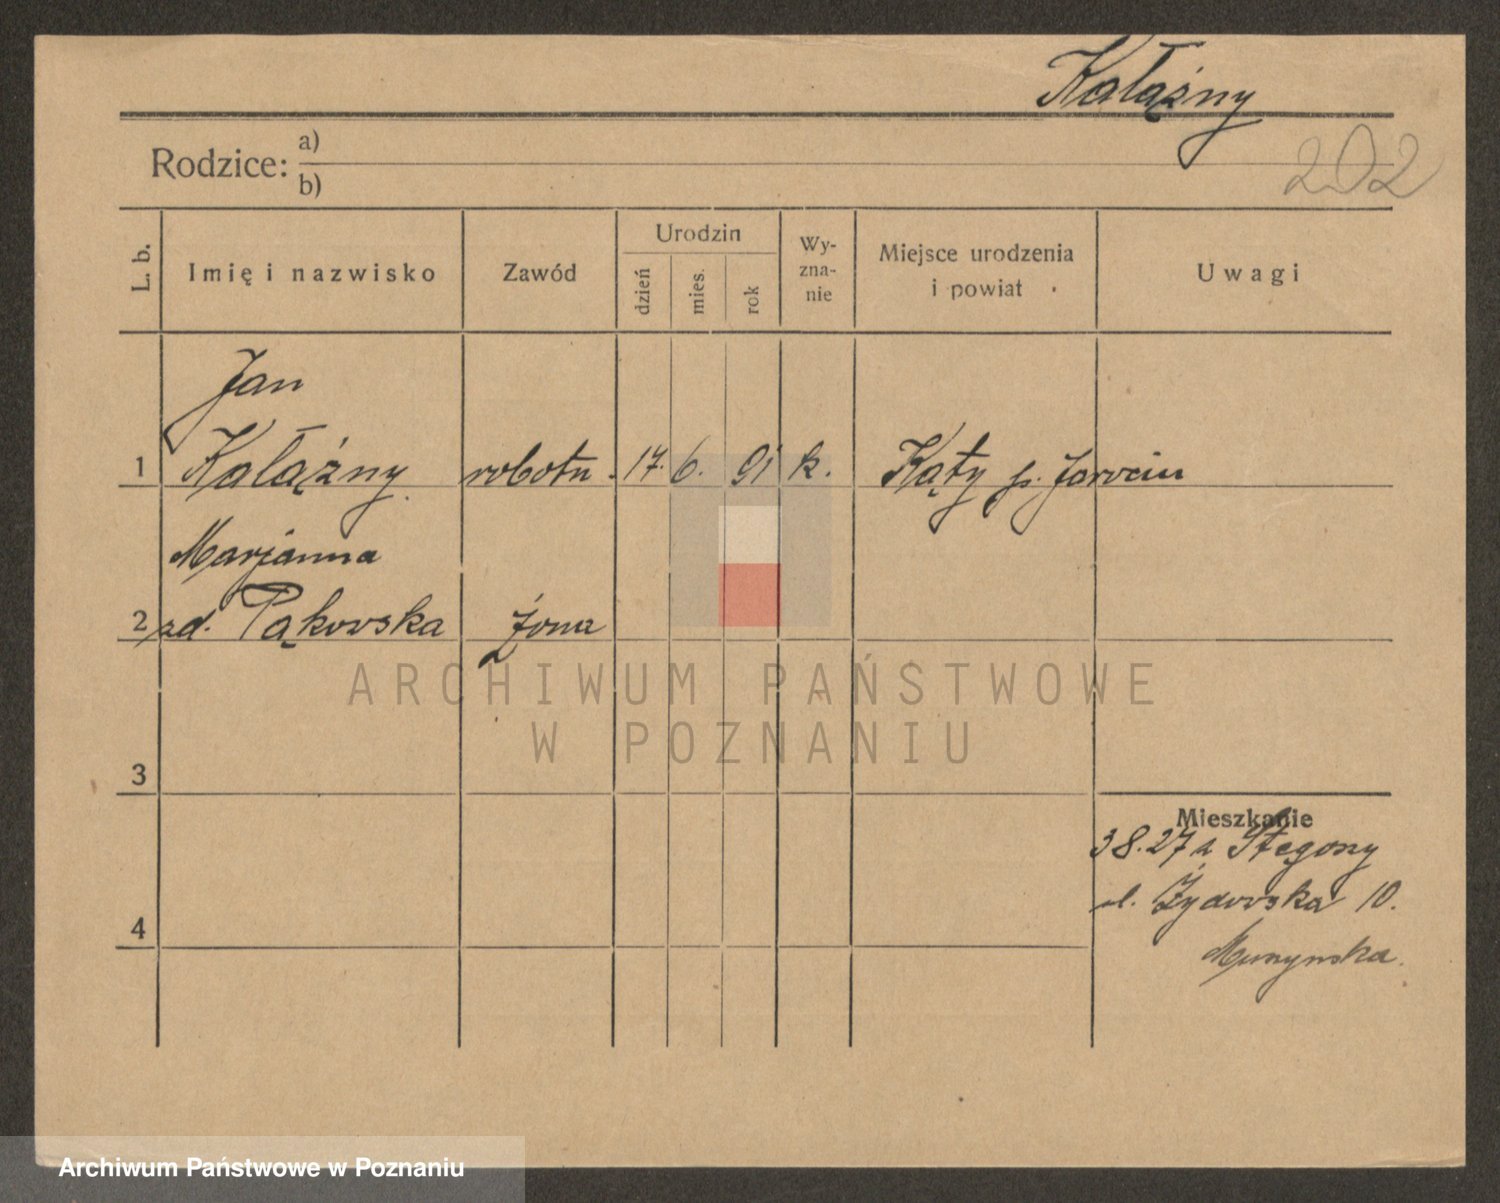 Kałążny
202
Rodzice: a)
b)
L. b.
Imię i nazwisko
Zawód
Urodzin
dzień
mies.
rok
Wy-
zna-
nie
Miejsce urodzenia
i powiat
Uwagi
Jan
1 Kałążny robotn. 17. 6. 91 k. Kąty p. Jarocin
Marjanna
2 zd. Pąkowska Żona
ARCHIWUM PAŃSTWOWE
W POZNANIU
3
Mieszkanie
3 8. 27 z Stęgoszy
ul. Żydowska 10.
4
Muszyńska.
Archiwum Państwowe w Poznaniu